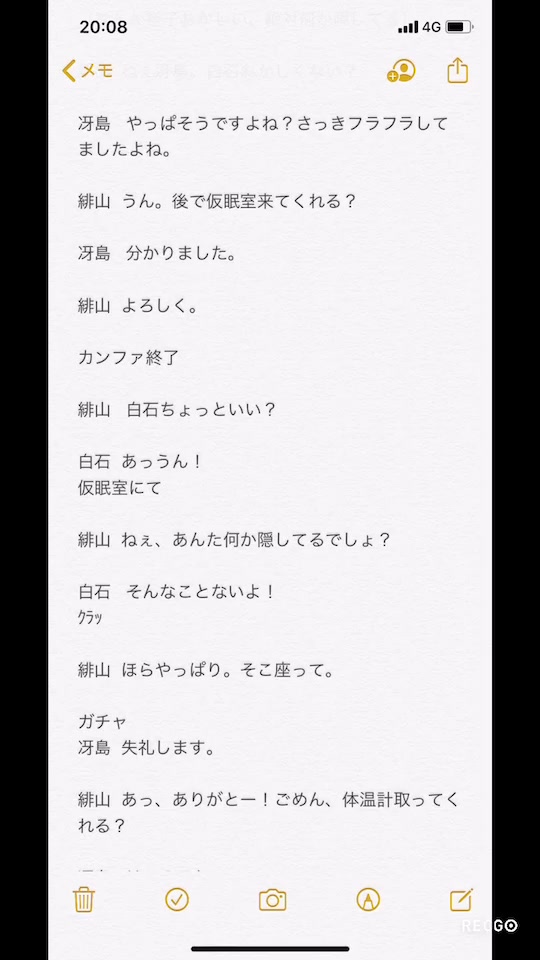 20:08
4G
メモ
冴島　やっぱそうですよね？さっきフラフラして
ましたよね。
緋山 うん。後で仮眠室来てくれる？
冴島　分かりました。
緋山 よろしく。
カンファ終了
緋山　白石ちょっといい？
白石 あっうん！
仮眠室にて
緋山 ねぇ、あんた何か隠してるでしょ？
白石　そんなことないよ！
ｸﾗｯ
緋山 ほらやっぱり。そこ座って。
ガチャ
冴島 失礼します。
緋山 あっ、ありがとー！ごめん、体温計取ってく
れる？
RECGO